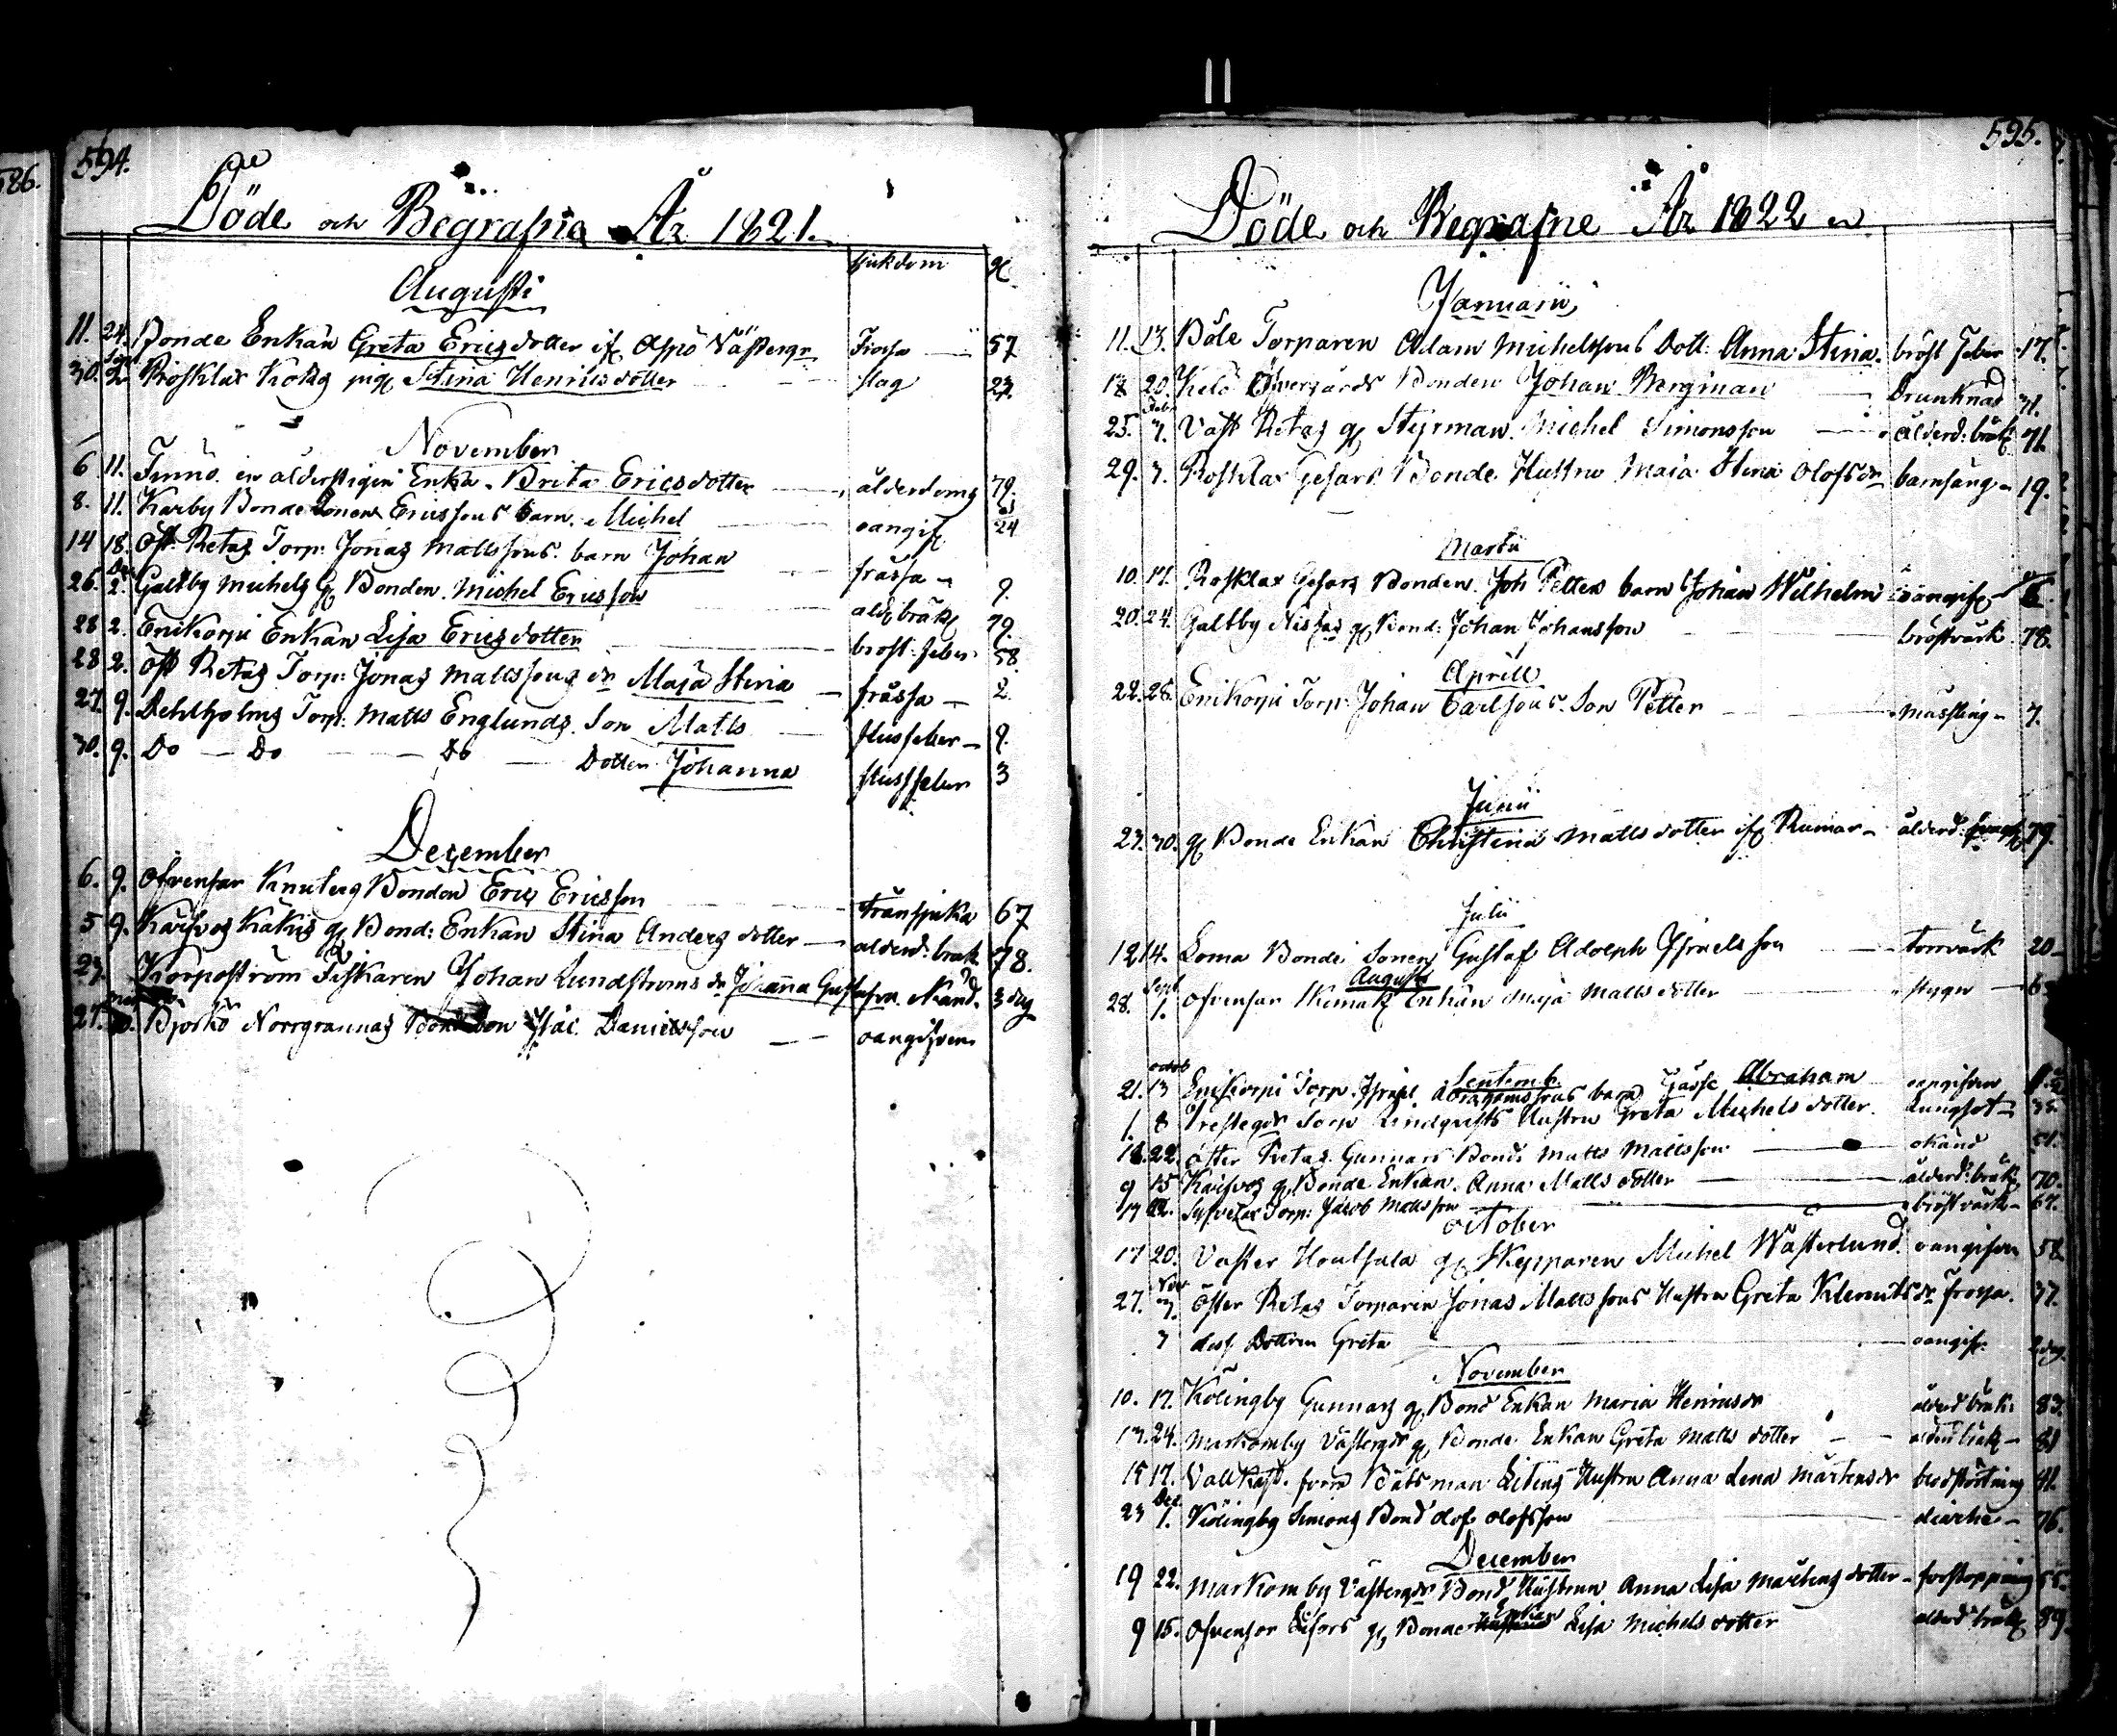 586.
594.
Döde och Begrafne År 1821.
sjukdom
Augusti
11. 24. Bonde Enkan Greta Ericsdotter if Aspö Västergr Frossa 57
30. Sept 2 Rosklax Kokz pig Stina Henricsdotter slag 23.
November
6 11. Finnö en ålderstigen Enka Brita Ericsdotter ålderdoms 79.
8. 11. Karby Bonde Sonens Ericssons barn Michel oangif 24
14 18. Öst Retas Torp: Jonas Mattssons barn Johan frässa 9.
26. Dec 2. Galtby Michels G Bonden Michel Ericsson ald bräk 79.
28 2. Enikorpi Enkan Lisa Ericsdotter bröst feber 58.
28 2. Öst Retas Torp: Jonas Mattssons dr Maja Stina frässa 2.
27. 9. Dehlholms Torp: Matts Englunds Son Matts flussfeber 9.
30. 9. Do Do Do Dotter Johanna flussfeber 3
December
6. 9. Ofvensar Knuters Bonden Eric Ericsson tränsjuka 67
5 9. Kärfvos Käkis g Bond: Enkan Stina Anders dotter alderd: bräk 78.
23. Korpoström Fiskaren Johan Lundströms dr Johanna okänd. 3 dag
27. Björkö Norrgrannas Isac Danielsson oangifven
595.
Döde och Begrafne År 1822
Januarii
11. 13. Böle Torparen Adam Michelssons Dott: Anna Stina. bröst feber 17.
12 20. Kelö Öfvergårds Bonden Johan Bergman Drunknad 31.
25. Feb 3. Väst Retas g Styrman Michel Simonsson ålderd: bräk 71.
29. 3. Rosklax Gesars Bonde Hustru Maja Stina Olofsdr barnsäng 19.
Martii
10. 17. Rosklax Gesars Bonden Joh Petters barn Johan Wilhelm oangif 6
20. 24. Galtby Nissas g Bond: Johan Johansson bröstvärk 78.
Aprill
22. 28. Enikorpi Torp: Johan Carlsons Son Petter mässling 7.
Junii
23. 30. g Bonde Enkan Christina Matts dotter if Rumar ålderd: 79.
Julii
12 14. Loma Bonde Sonen Gustaf Adolph Israelsson torrvärk 20
Augusti
28. Sept 1. Ofvensar Enkan Maja Matts dotter stygn 6
Septemb.
21. octob 13 Enikorpi Torp. Israel Abrahamssons barn Gosse Abraham oangifven
1. 8 Prestegds Torp Lindqvists Hustru Greta Michels dotter. Lungsot 35.
18. 22. Öster Retas Gunnars Bond: Matts Mattsson okänd 51.
9 15 Kärfvos g Bonde Enkan Anna Matts dotter ålderd: bräk 70.
17 22. Torp: Jacob Mattsson bröstvärk 67.
October
17 20. Väster Houtsala g Skepparen Michel Wästerlund oangifven 58
27. Nov 3. Öster Retas Torparen Jonas Mattssons Hustru Greta Klemets dr frossa. 37.
3 dess Dottren Greta oangif. 2 dag.
November
10. 17. Kölingby Gunnars g Bond Enkan Maria Henricsdr alderd bräk: 83.
13. 24. Markomby Västergds g Bonde Enkan Greta Matts dotter alderd bräk 81
15 17. Vattkast. förre Båtsman Litens Hustru Anna Lena Mårtensdr blodstörtning 41.
23 Dec 1. Kölingby Simons Bond Olof Olofsson diarhe 76.
December
19 22. Markomby Västergds Bond Hustrun Anna Lisa Mårtens dotter förstoppning 55.
9 15. Ofvensor Lisors g Bonde Enkan Lisa Michels dotter alderd bräk 89.